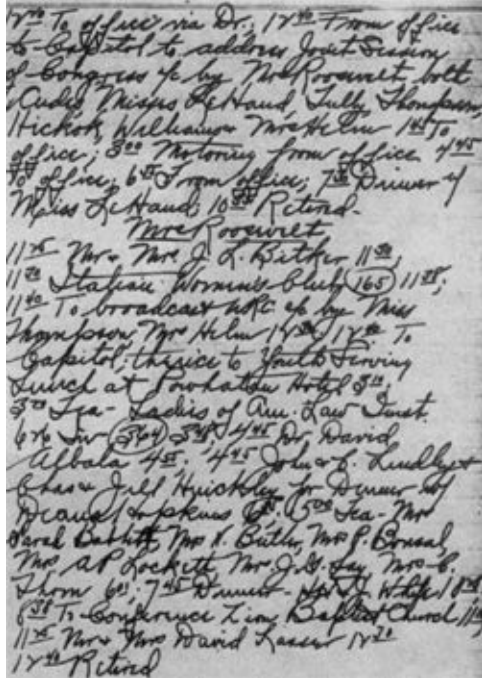 12 40 To office via Dr; 12 40 From office
to Capitol to address Joint Session
of Congress % by Mrs Roosevelt,
Misses LeHand, Tully, Thompson,
Hickok, Williams & Mrs Helm 1 45 To
office; 3 00 Motoring from office 4 45
To office; 6 From office; 7 30 Dinner w/
Miss LeHand; 10 Retired-
Mrs Roosevelt
11 Mr & Mrs J. L. Bitker 11 30;
11 Italian Womens Club (165) 11 38;
11 40 To broadcast NBC % by Miss
Thompson, Mrs Helm 12; 12 To
Capitol, thence to Youth Serving
Lunch at Powhatan Hotel 3
3 Tea- Ladies of Am. Law Inst.
(364) 4 45 Dr. David
Albala 4 4 45 John & Lindley &
Chas & Jill Hinckley for Dinner w/
Diana Hopkins 5 00 Tea- Mrs
Sarah Mrs Butler, Mrs Bonsal,
Mrs AP Lockett, Mrs J. G. Lay Mrs C.
Thom 6; 7 45 Dinner- White
8 To Conference Baptist Church 11
11 Mr & Mrs David Lasser 12
12 40 Retired